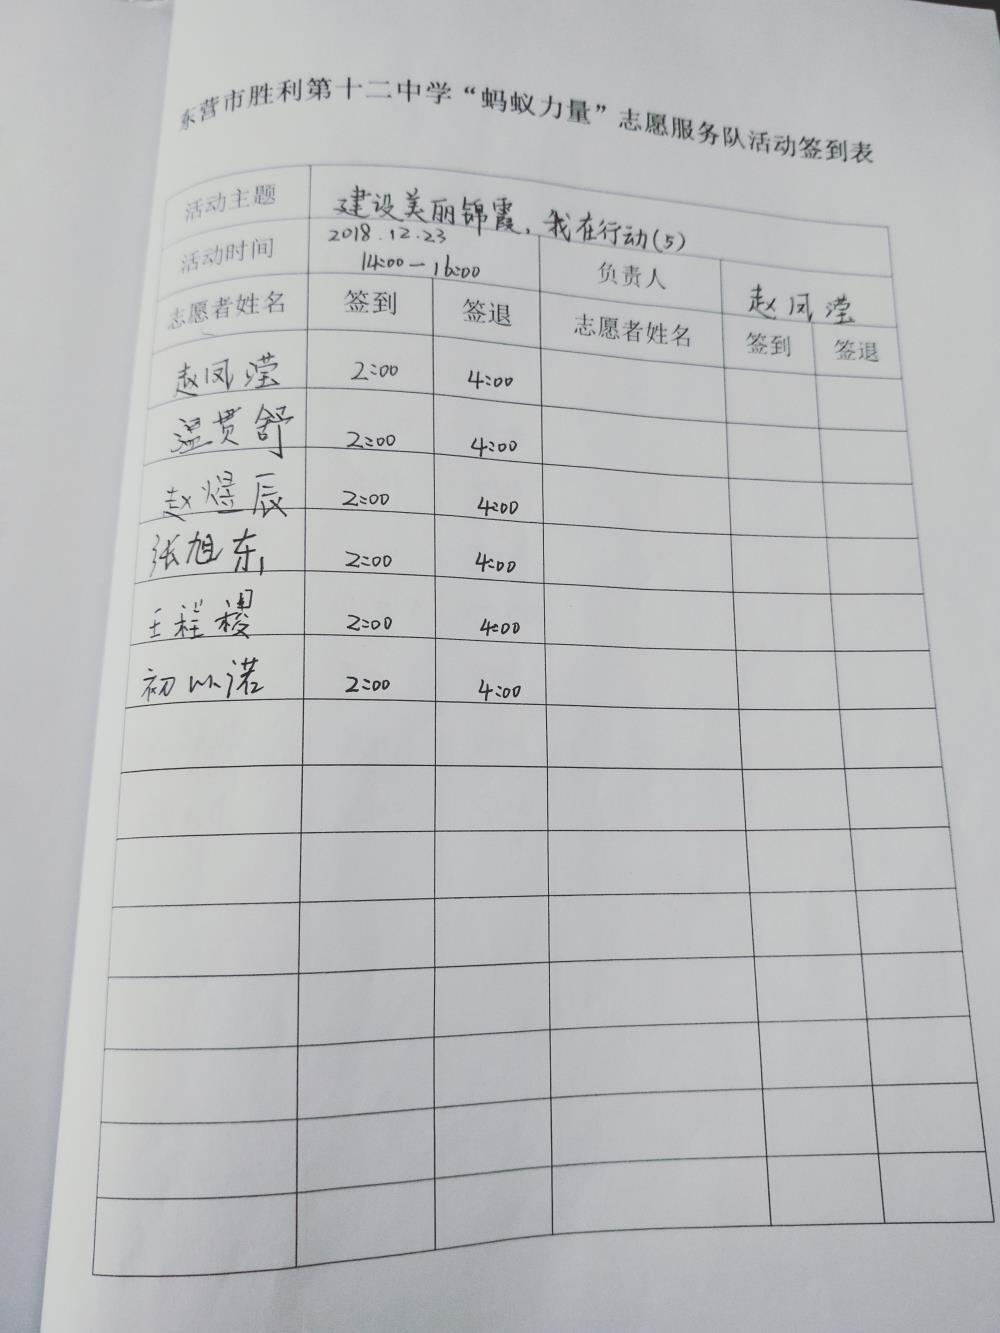 东营市胜利第十二中学“蚂蚁力量”志愿服务队活动签到表
活动主题 建设美丽锦霞，我在行动(5)
活动时间 2018.12.23 14:00—16:00 负责人 赵凤滢
志愿者姓名 签到 签退 志愿者姓名 签到 签退
赵凤滢 2:00 4:00
温贯舒 2:00 4:00
赵煜辰 2:00 4:00
张旭东 2:00 4:00
王程稷 2:00 4:00
初以诺 2:00 4:00